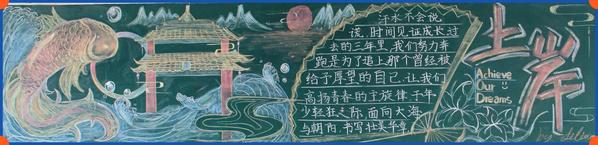 汗水不会说
谎,时间见证成长过
去的三年里,我们努力奔
跑是为了追上那个曾经被
给予厚望的自己.让我们
高扬青春的主旋律,于年
少轻狂之际,面向大海
与朝阳,书写壮美华章
上岸
Achieve
Our
Dreams